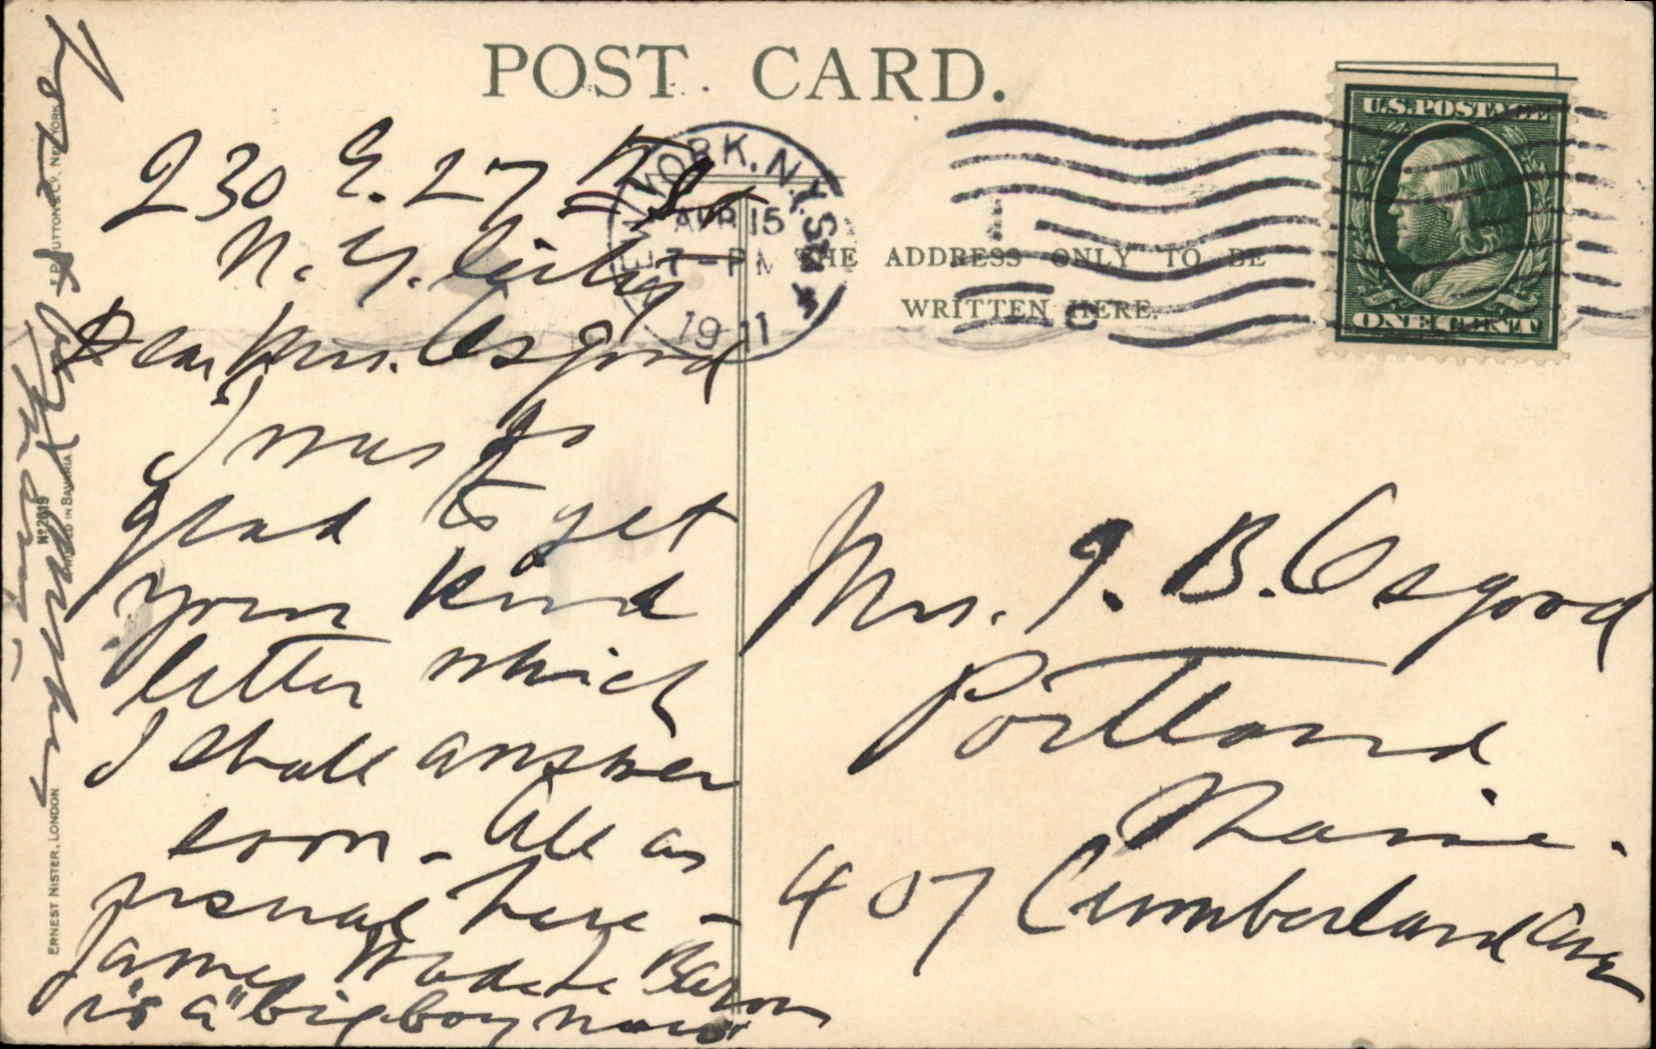 POST CARD.
230 E. 27th St.
N. Y. City
Dear Mrs. Osgood
I was so
glad to get
your kind
letter which
I shall answer
soon - All as
usual here -
James
is a "big boy now"
NEW YORK, N.Y. STA.
APR 15
7-PM
1911
THE ADDRESS ONLY TO BE
WRITTEN HERE.
U.S. POSTAGE
ONE CENT
Mrs. J. B. Osgood
Portland
Maine.
407 Cumberland Ave
ERNEST NISTER, LONDON
No 2619
PRINTED IN BAVARIA
E.P. DUTTON & CO. NEW YORK